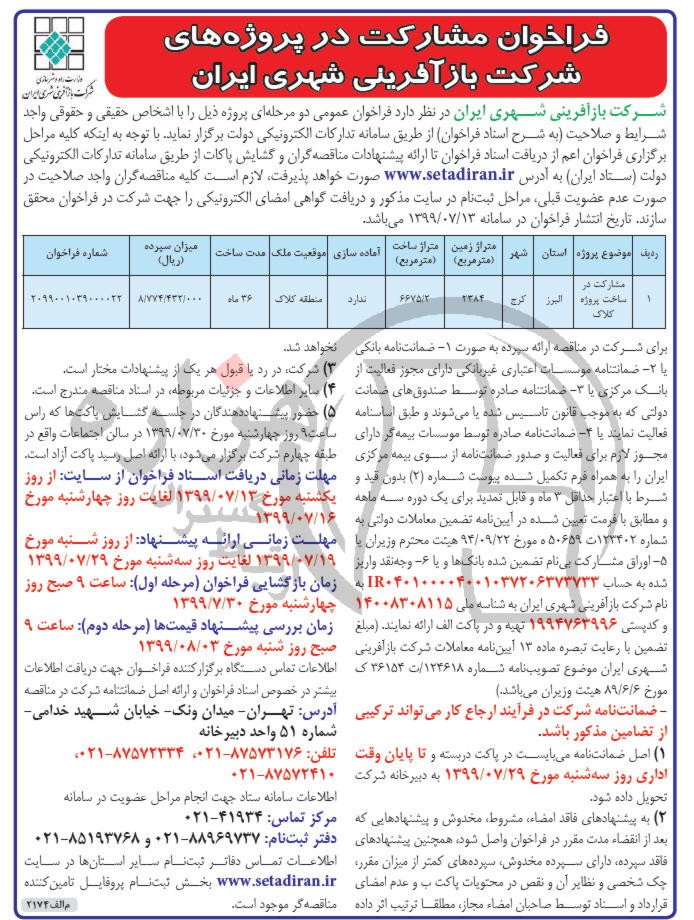 فراخوان مشارکت در پروژه‌های
شرکت بازآفرینی شهری ایران
وزارت راه و شهرسازی
شرکت بازآفرینی شهری ایران
شرکت بازآفرینی شهری ایران در نظر دارد فراخوان عمومی دو مرحله‌ای پروژه ذیل را با اشخاص حقیقی و حقوقی واجد
شرایط و صلاحیت (به شرح اسناد فراخوان) از طریق سامانه تدارکات الکترونیکی دولت برگزار نماید. با توجه به اینکه کلیه مراحل
برگزاری فراخوان اعم از دریافت اسناد فراخوان تا ارائه پیشنهادات مناقصه‌گران و گشایش پاکات از طریق سامانه تدارکات الکترونیکی
دولت (ستاد ایران) به آدرس www.setadiran.ir صورت خواهد پذیرفت، لازم است کلیه مناقصه‌گران واجد صلاحیت در
صورت عدم عضویت قبلی، مراحل ثبت‌نام در سایت مذکور و دریافت گواهی امضای الکترونیکی را جهت شرکت در فراخوان محقق
سازند. تاریخ انتشار فراخوان در سامانه ۱۳۹۹/۰۷/۱۳ می‌باشد.
ردیف موضوع پروژه استان شهر متراژ زمین (مترمربع) متراژ ساخت (مترمربع) آماده سازی موقعیت ملک مدت ساخت میزان سپرده (ریال) شماره فراخوان
۱ مشارکت در ساخت پروژه کلاک البرز کرج ۲۳۸۴ ۶۶۷۵/۲ ندارد منطقه کلاک ۳۶ ماه ۸/۷۷۴/۴۳۲/۰۰۰ ۲۰۹۹۰۰۱۰۳۹۰۰۰۰۲۲
برای شرکت در مناقصه ارائه سپرده به صورت ۱- ضمانت‌نامه بانکی
یا ۲- ضمانتنامه موسسات اعتباری غیربانکی دارای مجوز فعالیت از
بانک مرکزی یا ۳- ضمانتنامه صادره توسط صندوق‌های ضمانت
دولتی که به موجب قانون تاسیس شده یا می‌شوند و طبق اساسنامه
فعالیت نمایند یا ۴- ضمانت‌نامه صادره توسط موسسات بیمه‌گر دارای
مجوز لازم برای فعالیت و صدور ضمانت‌نامه از سوی بیمه مرکزی
ایران را به همراه فرم تکمیل شده پیوست شماره (۲) بدون قید و
شرط با اعتبار حداقل ۳ ماه و قابل تمدید برای یک دوره سه ماهه
و مطابق با فرمت تعیین شده در آیین‌نامه تضمین معاملات دولتی به
شماره ۱۲۳۴۰۲/ت ۵۰۶۵۹ ه مورخ ۹۴/۰۹/۲۲ هیئت محترم وزیران یا
۵- اوراق مشارکت بی‌نام تضمین شده بانک‌ها و یا ۶- وجه‌نقد واریز
شده به حساب IR۰۴۰۱۰۰۰۰۴۰۰۱۰۳۷۲۰۶۳۷۳۷۳۳ به
نام شرکت بازآفرینی شهری ایران به شناسه ملی ۱۴۰۰۸۳۰۸۱۱۵
و کدپستی ۱۹۹۴۷۶۳۹۹۶ تهیه و در پاکت الف ارائه نمایند. (مبلغ
تضمین با رعایت تبصره ماده ۱۳ آیین‌نامه معاملات شرکت بازآفرینی
شهری ایران موضوع تصویب‌نامه شماره ۱۲۴۶۱۸/ت ۳۶۱۵۴ ک
مورخ ۸۹/۶/۶ هیئت وزیران می‌باشد.)
- ضمانت‌نامه شرکت در فرآیند ارجاع کار می‌تواند ترکیبی
از تضامین مذکور باشد.
۱) اصل ضمانت‌نامه می‌بایست در پاکت دربسته و تا پایان وقت
اداری روز سه‌شنبه مورخ ۱۳۹۹/۰۷/۲۹ به دبیرخانه شرکت
تحویل داده شود.
۲) به پیشنهادهای فاقد امضاء، مشروط، مخدوش و پیشنهادهایی که
بعد از انقضاء مدت مقرر در فراخوان واصل شود، همچنین پیشنهادهای
فاقد سپرده، دارای سپرده مخدوش، سپرده‌های کمتر از میزان مقرر،
چک شخصی و نظایر آن و نقص در محتویات پاکت ب و عدم امضای
قرارداد و اسناد توسط صاحبان امضاء مجاز، مطلقا ترتیب اثر داده
نخواهد شد.
۳) شرکت، در رد یا قبول هر یک از پیشنهادات مختار است.
۴) سایر اطلاعات و جزئیات مربوطه، در اسناد مناقصه مندرج است.
۵) حضور پیشنهاددهندگان در جلسه گشایش پاکت‌ها که راس
ساعت ۹ روز چهارشنبه مورخ ۱۳۹۹/۰۷/۳۰ در سالن اجتماعات واقع در
طبقه چهارم شرکت برگزار می‌شود، با ارائه اصل رسید پاکت آزاد است.
مهلت زمانی دریافت اسناد فراخوان از سایت: از روز
یکشنبه مورخ ۱۳۹۹/۰۷/۱۳ لغایت روز چهارشنبه مورخ
۱۳۹۹/۰۷/۱۶
مهلت زمانی ارائه پیشنهاد: از روز شنبه مورخ
۱۳۹۹/۰۷/۱۹ لغایت روز سه‌شنبه مورخ ۱۳۹۹/۰۷/۲۹
زمان بازگشایی فراخوان (مرحله اول): ساعت ۹ صبح روز
چهارشنبه مورخ ۱۳۹۹/۷/۳۰
زمان بررسی پیشنهاد قیمت‌ها (مرحله دوم): ساعت ۹
صبح روز شنبه مورخ ۱۳۹۹/۰۸/۰۳
اطلاعات تماس دستگاه برگزارکننده فراخوان جهت دریافت اطلاعات
بیشتر در خصوص اسناد فراخوان و ارائه اصل ضمانتنامه شرکت در مناقصه
آدرس: تهران- میدان ونک- خیابان شهید خدامی-
شماره ۵۱ واحد دبیرخانه
تلفن: ۸۷۵۷۳۱۷۶-۰۲۱، ۸۷۵۷۲۳۳۴-۰۲۱،
۸۷۵۷۲۴۱۰-۰۲۱
اطلاعات سامانه ستاد جهت انجام مراحل عضویت در سامانه
مرکز تماس: ۴۱۹۳۴-۰۲۱
دفتر ثبت‌نام: ۸۸۹۶۹۷۳۷-۰۲۱ و ۸۵۱۹۳۷۶۸-۰۲۱
اطلاعات تماس دفاتر ثبت‌نام سایر استان‌ها در سایت
www.setadiran.ir بخش ثبت‌نام پروفایل تامین‌کننده
مناقصه‌گر موجود است.
م‌الف ۲۱۷۴